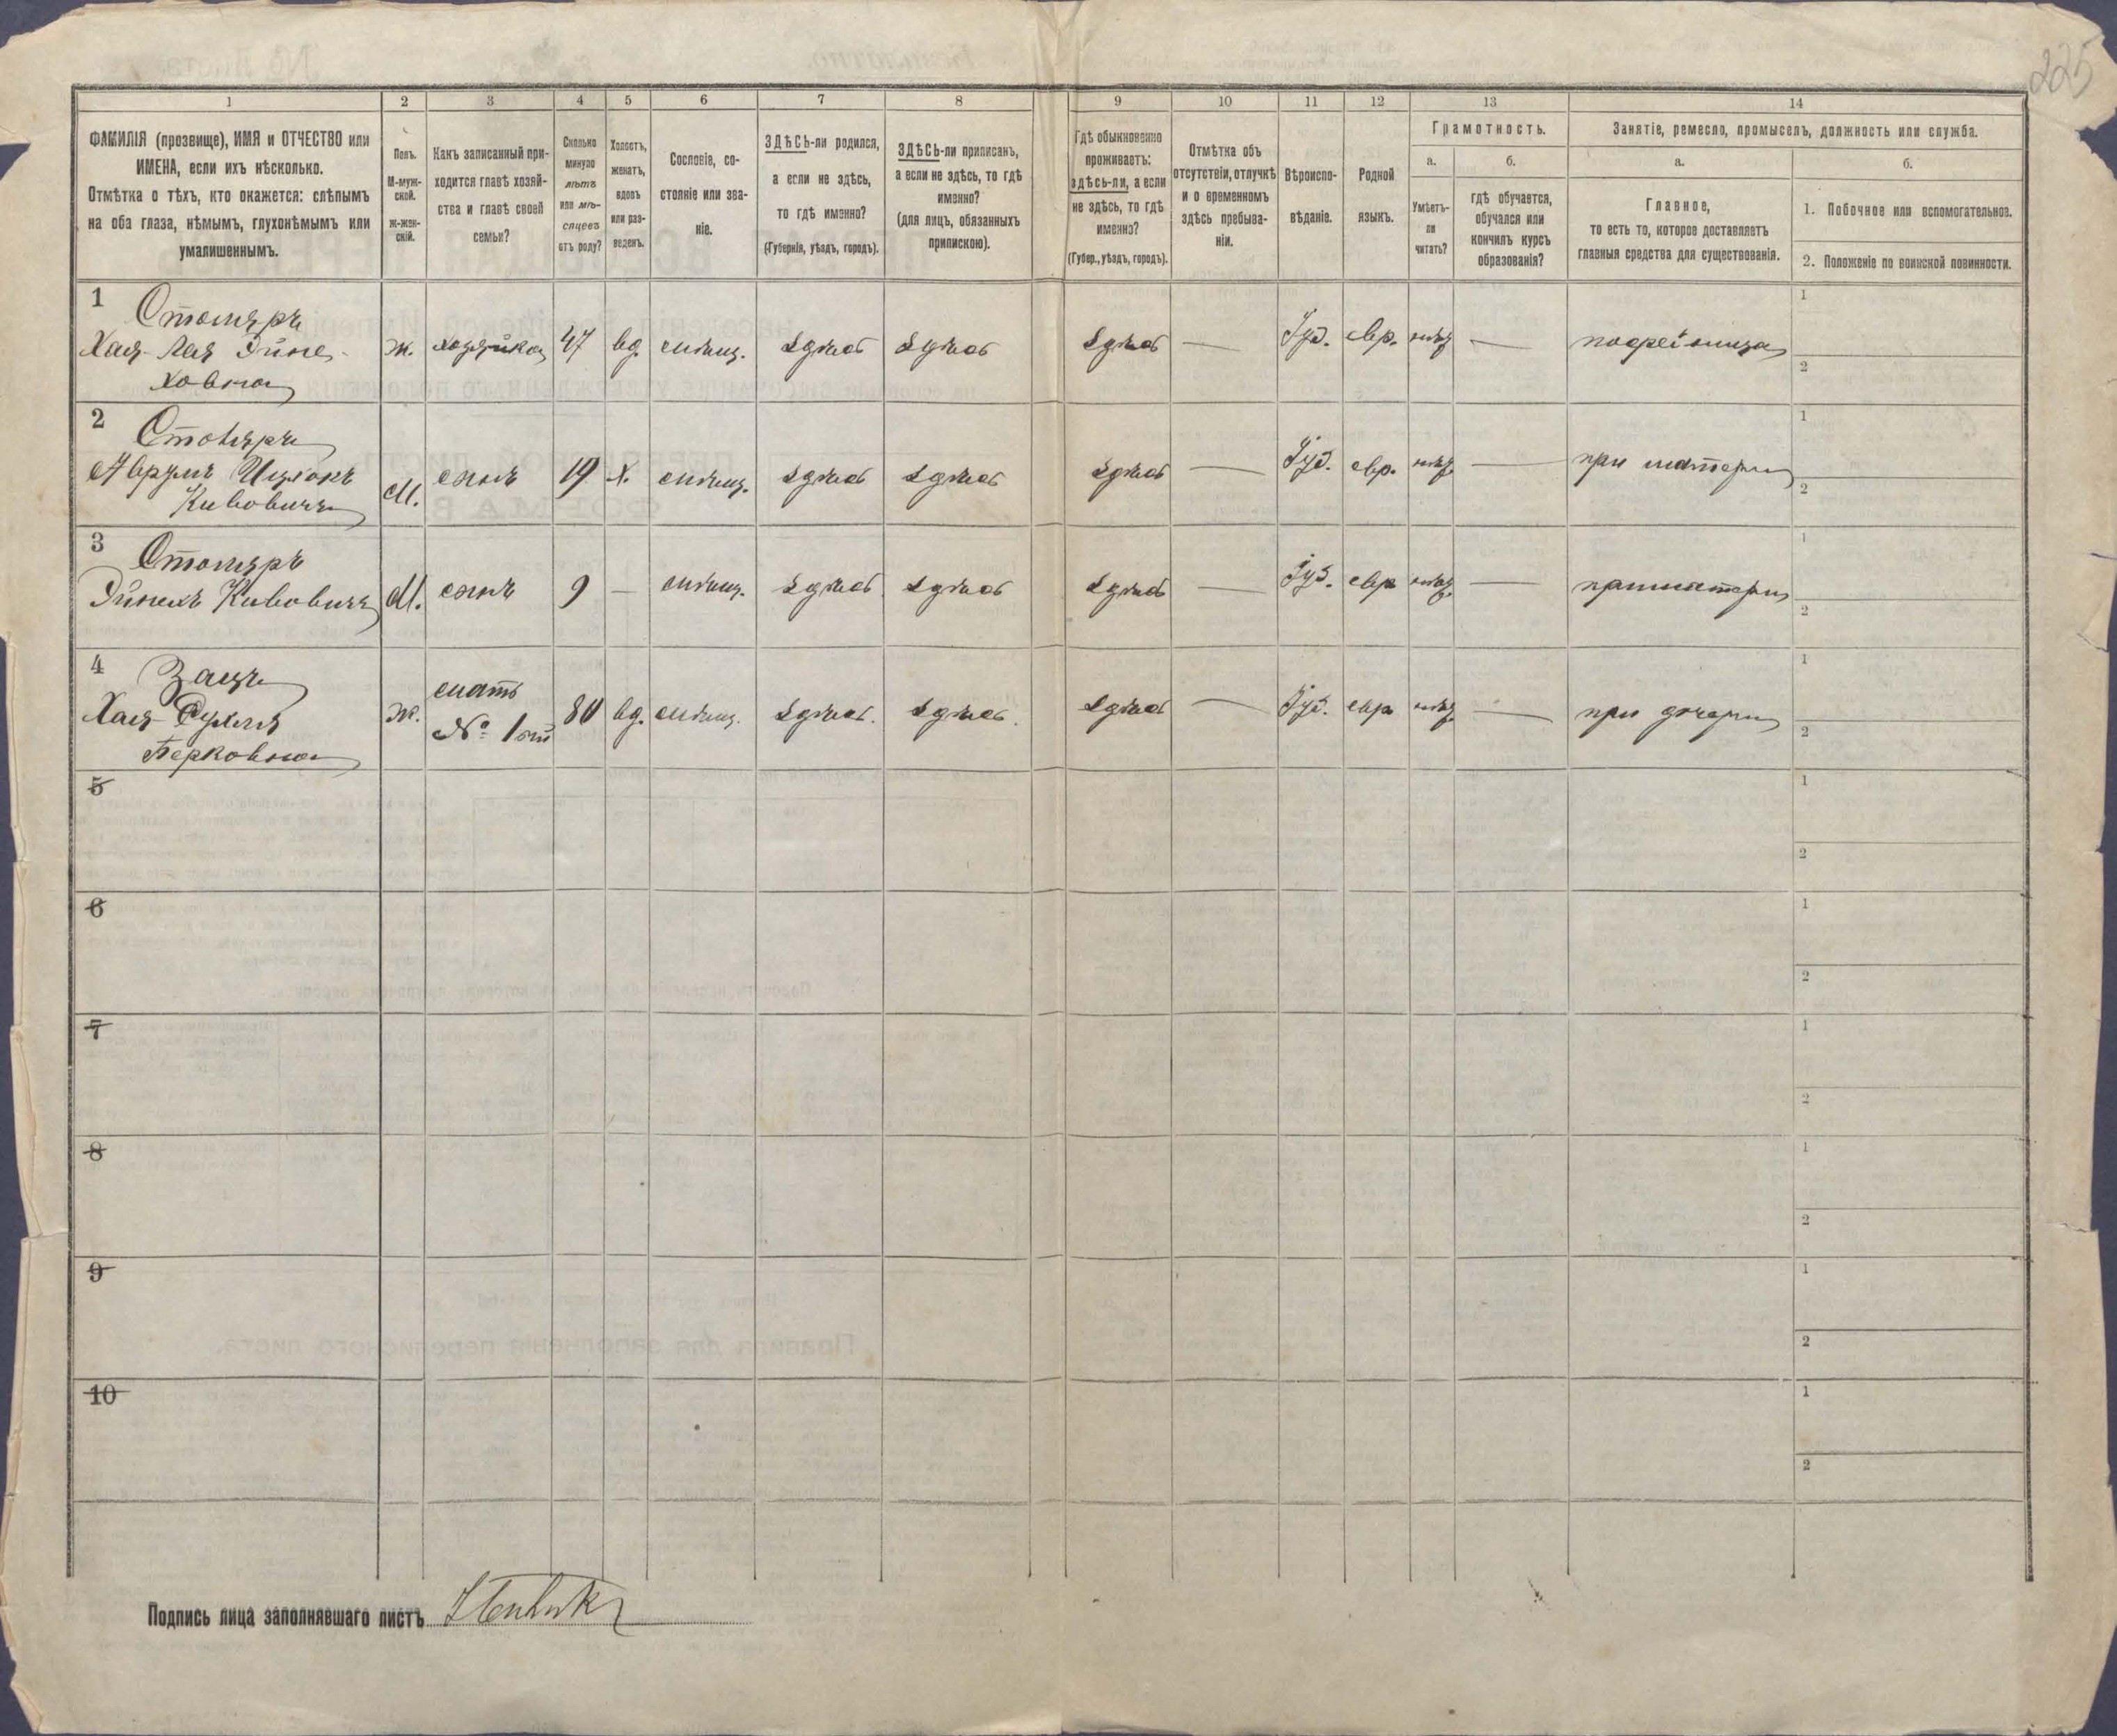 225
1 2 3 4 5 6 7 8 9 10 11 12 13 14
ФАМИЛІЯ (прозвище), ИМЯ и ОТЧЕСТВО или
ИМЕНА, если ихъ нѣсколько.
Отмѣтка о тѣхъ, кто окажется: слѣпымъ
на оба глаза, нѣмымъ, глухонѣмымъ или
умалишеннымъ.
Полъ.
М-муж-
ской.
ж-жен-
скій.
Какъ записанный при-
ходится главѣ хозяй-
ства и главѣ своей
семьи?
Сколько
минуло
лѣтъ
или мѣ-
сяцевъ
отъ роду?
Холостъ,
женатъ,
вдовъ
или раз-
веденъ.
Сословіе, со-
стояніе или зва-
ніе.
ЗДѢСЬ-ли родился,
а если не здѣсь,
то гдѣ именно?
(Губернія, уѣздъ, городъ).
ЗДѢСЬ-ли приписанъ,
а если не здѣсь, то гдѣ
именно?
(для лицъ, обязанныхъ
припискою).
Гдѣ обыкновенно
проживаетъ:
здѣсь-ли, а если
не здѣсь, то гдѣ
именно?
(Губер., уѣздъ, городъ).
Отмѣтка объ
отсутствіи, отлучкѣ
и о временномъ
здѣсь пребыва-
ніи.
Вѣроиспо-
вѣданіе.
Родной
языкъ.
Грамотность.
а.
Умѣетъ-
ли
читать?
б.
гдѣ обучается,
обучался или
кончилъ курсъ
образованія?
Занятіе, ремесло, промыселъ, должность или служба.
а.
Главное,
то есть то, которое доставляетъ
главныя средства для существованія.
б.
1. Побочное или вспомогательное.
2. Положеніе по воинской повинности.
1 Столяръ
Хая-Лея Эйне-
ховна
ж. хозяйка 47 вд. мѣщ. здѣсь здѣсь здѣсь — Іуд. евр. —
1
2
2 Столяръ
Аврумъ Ицхокъ
Кивовичъ
М. сынъ 19 х. мѣщ. здѣсь здѣсь здѣсь — Іуд. евр. — при матери
1
2
3 Столяръ
Эйнехъ Кивовичъ
М. сынъ 9 — мѣщ. здѣсь здѣсь здѣсь — Іуд. евр — при матери
1
2
4 Зацъ
Хая-Рухля
Берковна
ж. мать
№ 1ой 80 вд. мѣщ. здѣсь. здѣсь. здѣсь — Іуд. евр — при дочери
1
2
5
1
2
6
1
2
7
1
2
8
1
2
9
1
2
10
1
2
Подпись лица заполнявшаго листъ